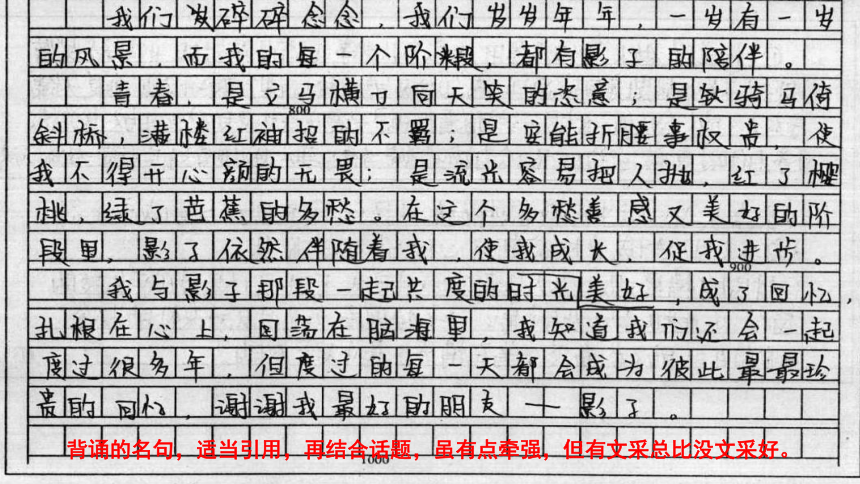 我们岁碎碎念念，我们岁岁年年，一岁有一岁
的风景，而我的每一个阶段，都有影子的陪伴。
青春，是立马横刀向天笑的恣意；是软骑马倚
800
斜桥，满楼红袖招的不羁；是安能折腰事权贵，使
我不得开心颜的无畏；是流光容易把人抛，红了樱
桃，绿了芭蕉的多愁。在这个多愁善感又美好的阶
段里，影子依然伴随着我，使我成长，促我进步。
900
我与影子那段一起共度的时光美好，成了回忆，
扎根在心上，回荡在脑海里，我知道我们还会一起
度过很多年，但度过的每一天都会成为彼此最最珍
贵的回忆，谢谢我最好的朋友——影子。
背诵的名句，适当引用，再结合话题，虽有点牵强，但有文采总比没文采好。
1000